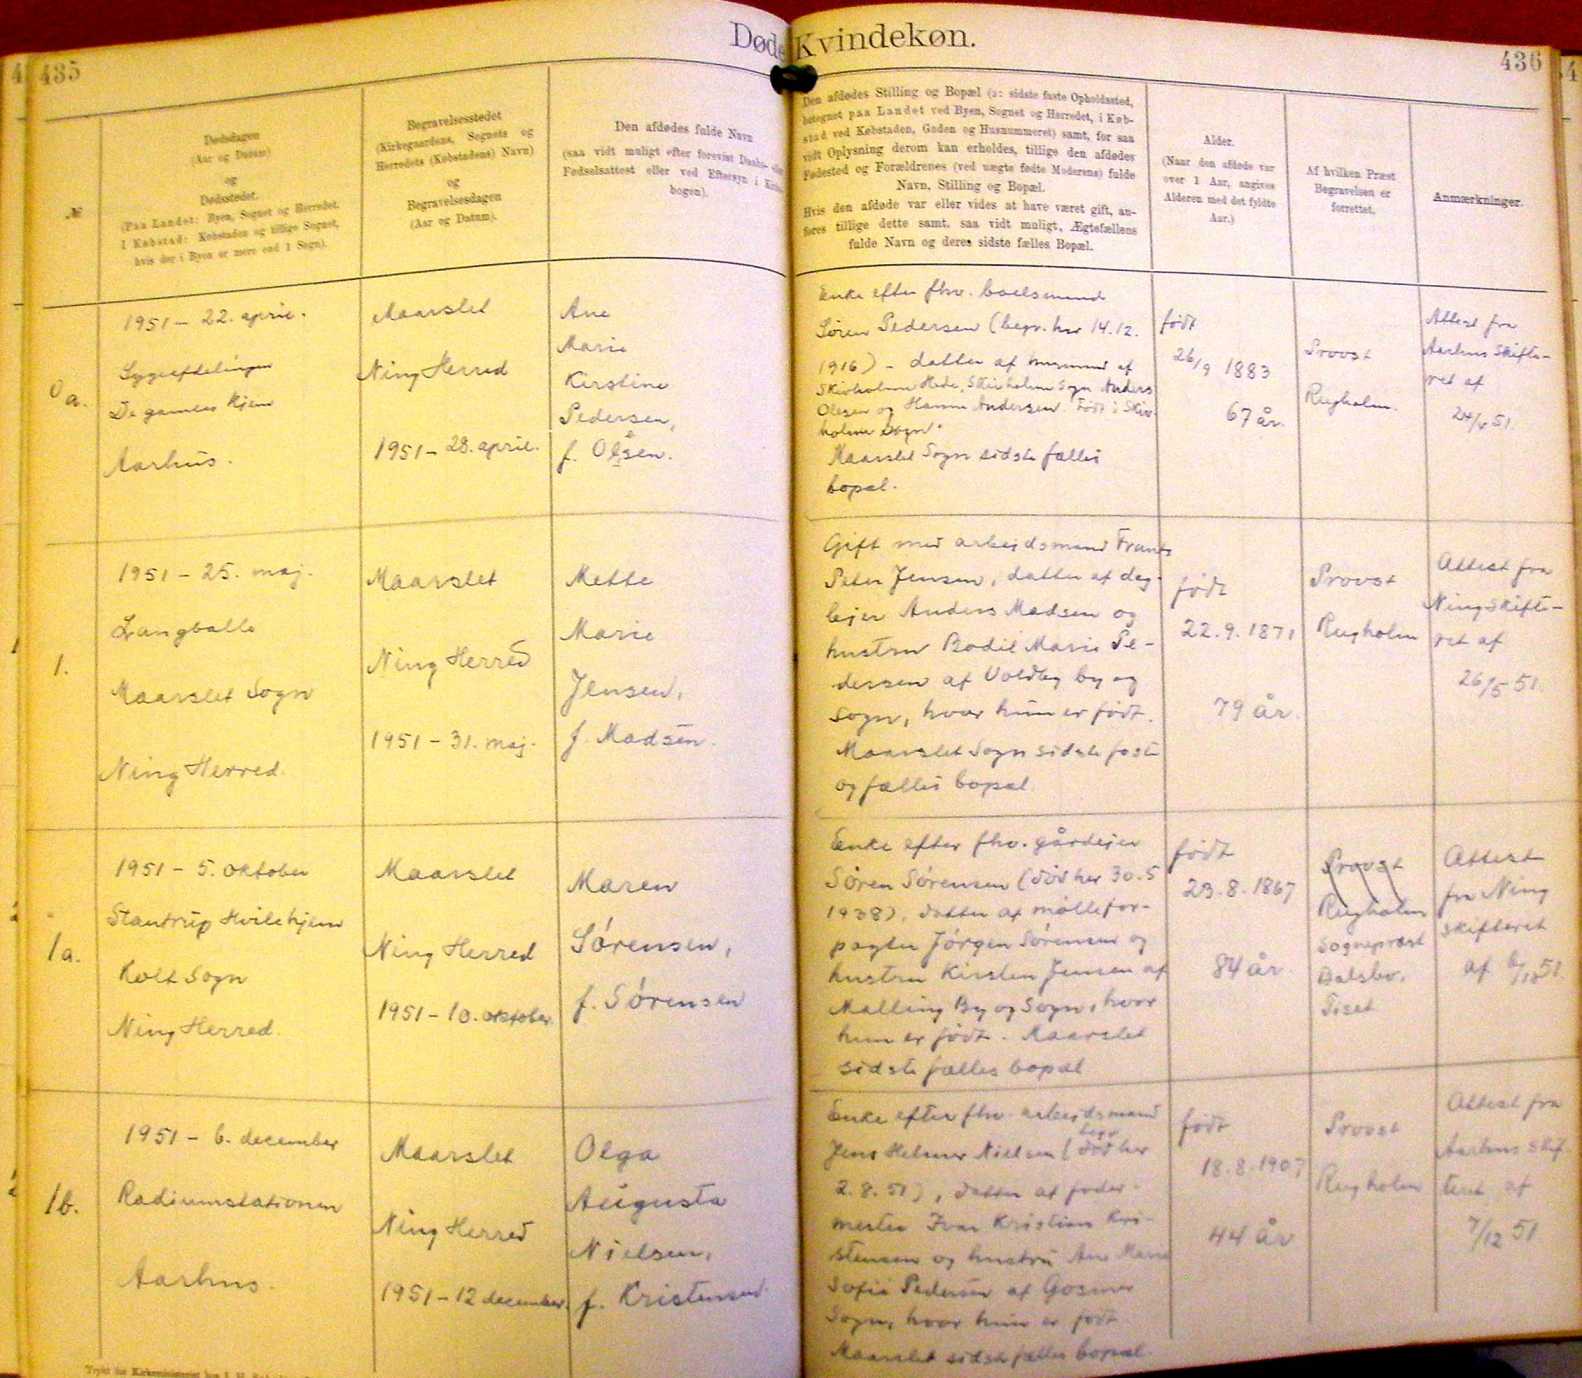 Døde Kvindekøn.
435
436
№
Dødsdagen
(Aar og Datum)
og
Dødsstedet.
(Paa Landet: Byen, Sognet og Herredet.
I Købstad: Købstaden og tillige Sognet,
hvis der i Byen er mere end 1 Sogn).
Begravelsesstedet
(Kirkegaardens, Sognets og
Herredets (Købstadens) Navn)
og
Begravelsesdagen
(Aar og Datum).
Den afdødes fulde Navn
(saa vidt muligt efter forevist Daabs- eller
Fødselsattest eller ved Eftersyn i Kirke-
bogen).
Den afdødes Stilling og Bopæl (ɔ: sidste faste Opholdssted,
betegnet paa Landet ved Byen, Sognet og Herredet, i Køb-
stad ved Købstaden, Gaden og Husnummeret) samt, for saa
vidt Oplysning derom kan erholdes, tillige den afdødes
Fødested og Forældrenes (ved uægte fødte Moderens) fulde
Navn, Stilling og Bopæl.
Hvis den afdøde var eller vides at have været gift, an-
føres tillige dette samt, saa vidt muligt, Ægtefællens
fulde Navn og deres sidste fælles Bopæl.
Alder.
(Naar den afdøde var
over 1 Aar, angives
Alderen med det fyldte
Aar.)
Af hvilken Præst
Begravelsen er
forrettet.
Anmærkninger.
0a.
1951 – 22. april.
Sygeafdelingen
De gamles Hjem
Aarhus.
Maarslet
Ning Herred
1951 – 28. april.
Ane
Marie
Kirstine
Pedersen,
f. Olesen.
Enke efter fhv. boelsmand
Søren Pedersen (begr. her 14.12.
1916) – datter af husmand af
Skivholme Hede, Skivholme Sogn Anders
Olesen og Hanne Andersen. Født i Skiv-
holme Sogn.
Maarslet Sogn sidste fælles
bopæl.
født
26/9 1883
67 år.
Provst
Rugholm.
Attest fra
Aarhus Skifte-
ret af
24/4 51.
1.
1951 – 25. maj.
Langballe
Maarslet Sogn
Ning Herred.
Maarslet
Ning Herred
1951 – 31. maj.
Mette
Marie
Jensen,
f. Madsen.
Gift med arbejdsmand Frants
Peter Jensen, datter af dag-
lejer Anders Madsen og
hustru Bodil Marie Pe-
dersen af Voldby by og
sogn, hvor hun er født.
Maarslet Sogn sidste faste
og fælles bopæl.
født
22.9.1871
79 år.
Provst
Rugholm
Attest fra
Ning Skifte-
ret af
26/5 51.
1a.
1951 – 5. oktober
Stautrup Hvilehjem
Kolt Sogn
Ning Herred.
Maarslet
Ning Herred
1951 – 10. oktober.
Maren
Sørensen,
f. Sørensen
Enke efter fhv. gårdejer
Søren Sørensen (død her 30.5
1938), datter af møllefor-
pagter Jørgen Sørensen og
hustru Kirsten Jensen af
Malling By og Sogn, hvor
hun er født. Maarslet
sidste fælles bopæl
født
23.8.1867
84 år.
Provst
Rugholm
Sognepræst
Balslev.
Tiset
Attest
fra Ning
skifteret
af 6/10 51.
1b.
1951 – 6. december
Radiumstationen
Aarhus.
Maarslet
Ning Herred
1951 – 12 december.
Olga
Augusta
Nielsen,
f. Kristensen.
Enke efter fhv. arbejdsmand
begr
Jens Helmer Nielsen (død her
2.8.51), datter af foder-
mester Ivar Kristian Kri-
stensen og hustru Ane Marie
Sofie Pedersen af Gosmer
Sogn, hvor hun er født
Maarslet sidste fælles bopæl.
født
18.8.1907
44 år
Provst
Rugholm
Attest fra
Aarhus Skif-
teret af
7/12 51